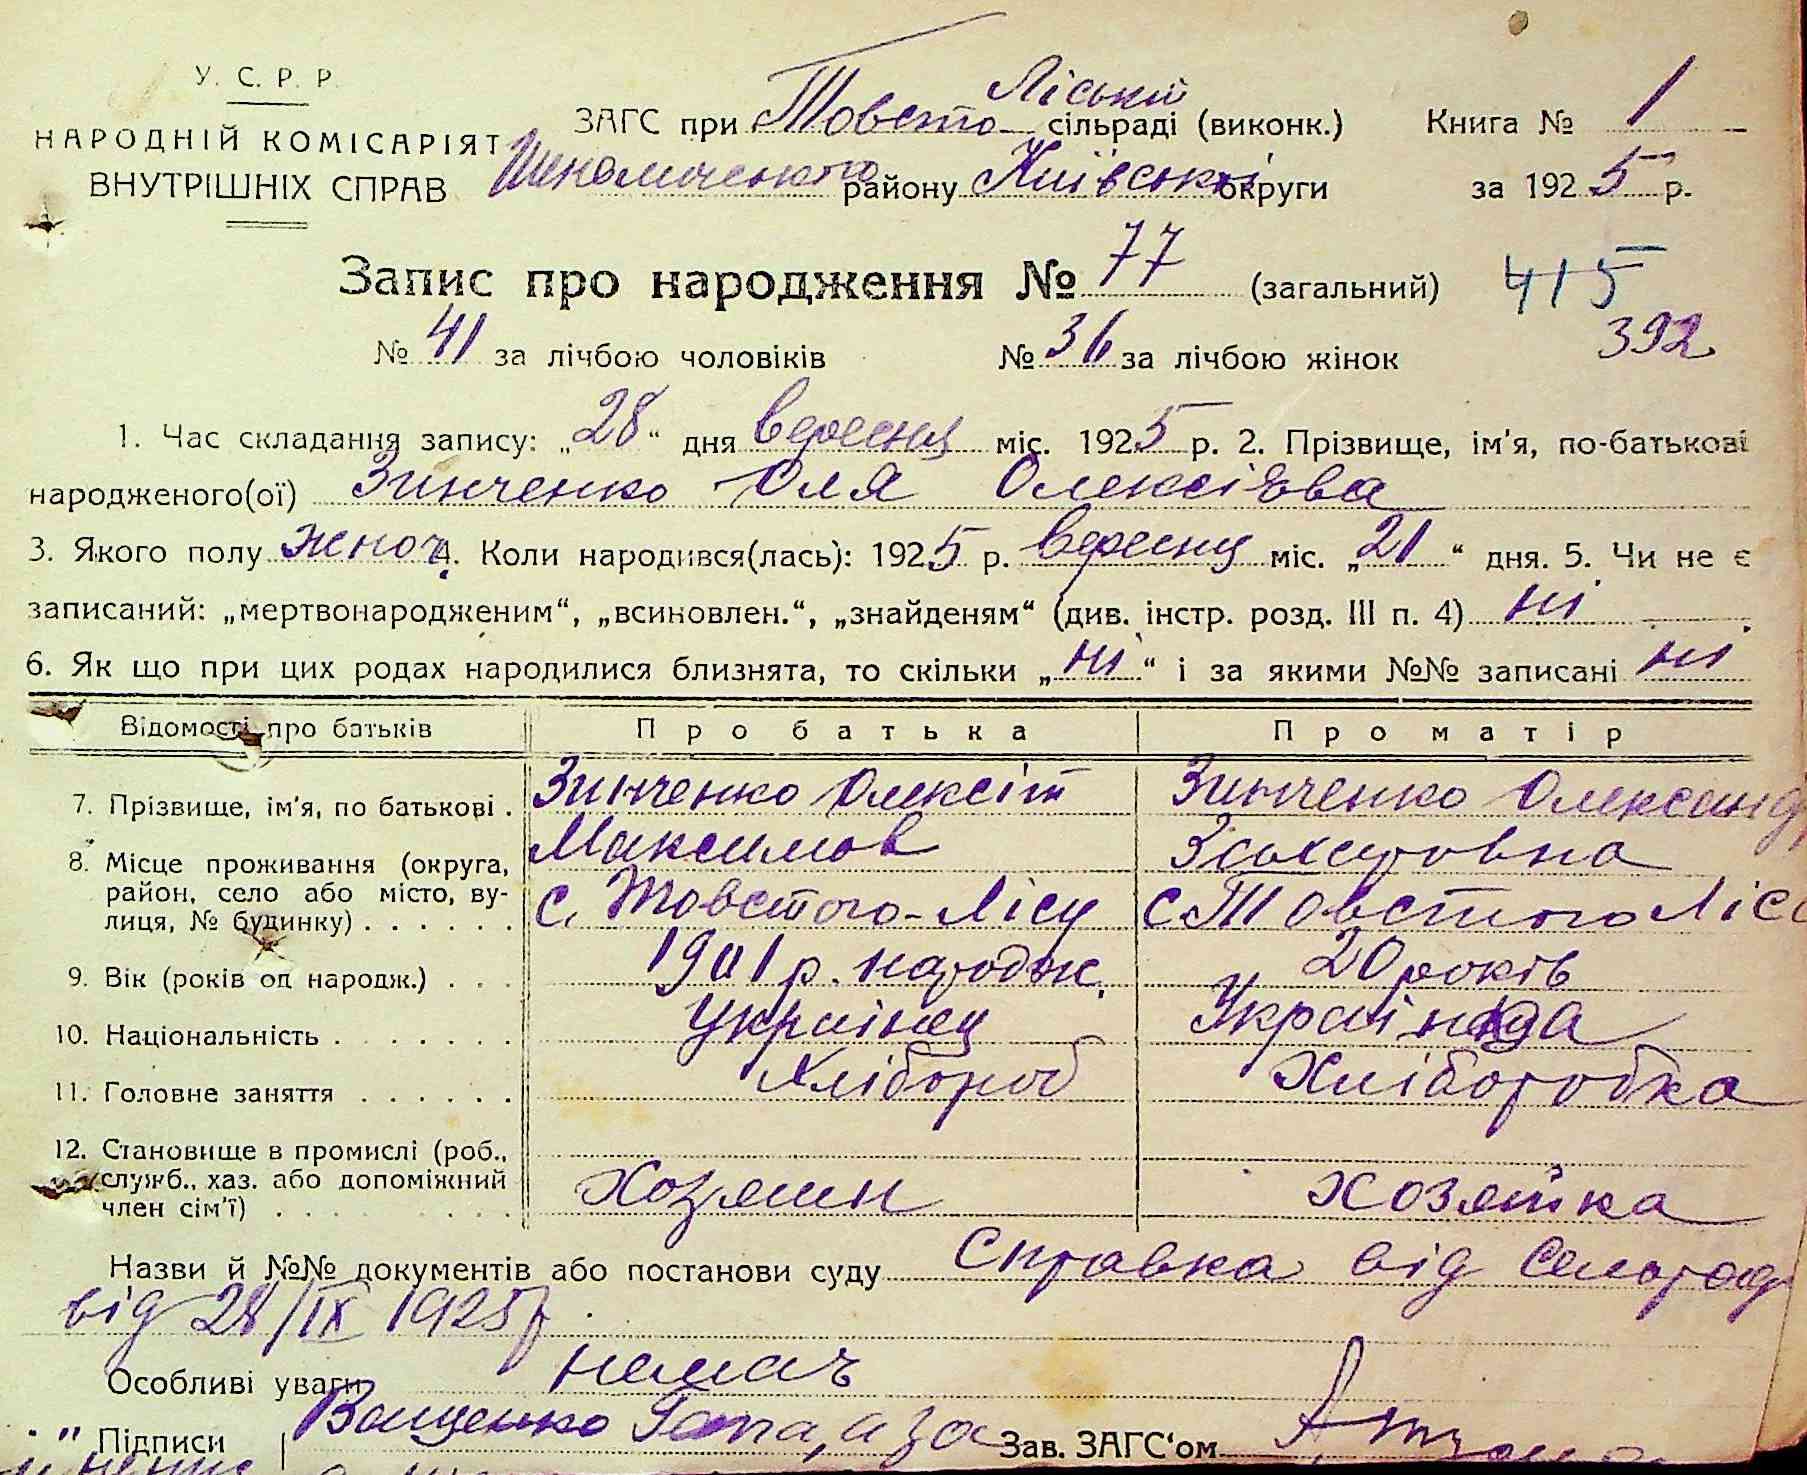 У. С. Р. Р.
НАРОДНІЙ КОМІСАРІЯТ
ВНУТРІШНІХ СПРАВ
ЗАГС при Товсто-Ліській сільраді (виконк.) Книга № 1
району Київської округи за 1925 р.
Запис про народження № 77 (загальний) 415
№ 41 за лічбою чоловіків № 36 за лічбою жінок 392
1. Час складання запису: „28“ дня вересня міс. 1925 р. 2. Прізвище, ім'я, по-батькові
народженого(ої) Зинченко Оля Олексієва
3. Якого полу жіноч. 4. Коли народився(лась): 1925 р. вересня міс. „21“ дня. 5. Чи не є
записаний: „мертвонародженим“, „всиновлен.“, „знайденям“ (див. інстр. розд. III п. 4) ні
6. Як що при цих родах народилися близнята, то скільки „ні“ і за якими №№ записані ні
Відомості про батьків П р о б а т ь к а П р о м а т і р
7. Прізвище, ім'я, по батькові . Зинченко Олексій Зинченко Олександ
Максимов
8. Місце проживання (округа,
район, село або місто, ву-
лиця, № будинку) . . . . . . с. Товстого-Лісу с. Товстого Ліса
9. Вік (років од народж.) . . . 1901 р. народж. 20 років
10. Національність . . . . . . . Українец Українка
11. Головне заняття . . . . . . Хлібороб Хліборобка
12. Становище в промислі (роб.,
служб., хаз. або допоміжний
член сім'ї) . . . . . . . . . Хозяин хозяйка
Назви й №№ документів або постанови суду Справка від Сельрад
від 28/IX 1925 р.
Особливі уваги немає
Підписи Ващенко а за Зав. ЗАГС'ом